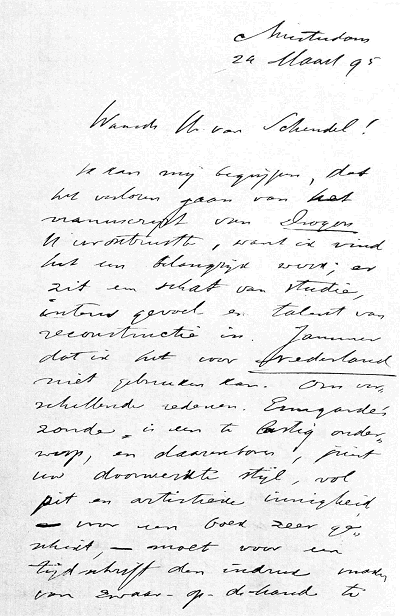 Amsterdam
24 Maart 95
Waarde Hr van Schendel!
Ik kan mij begrijpen, dat
het verloren gaan van het
manuscript van Drogon
U verontrustte, want ik vind
het een belangrijk werk; er
zit een schat van studie,
intens gevoel en talent van
reconstructie in. Jammer
dat ik het voor Nederland
niet gebruiken kan. Om ver-
schillende redenen. Ermgarde's
zonde, is een te lastig onder-
werp, en daarenboven, juist
uw doorwerkte stijl, vol
pit en artistieke innigheid
— voor een boek zeer ge-
schikt, — moet voor een
tijdschrift den indruk maken
van zwaar-op-de-hand te